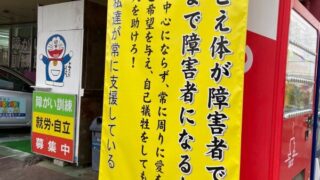 え体が障害者で
まで障害者になる
中心にならず、常に周りに愛を
希望を与え、自己犠牲をしても
を助けろ！
私達が常に支援している
障がい訓練
就労・自立
募集中